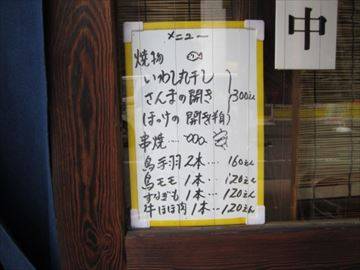 メニュー
焼物
いわし丸干し
さんまの開き
ほっけの開き(半身)
300えん
串焼…
鳥手羽 2本… 160えん
鳥モモ 1本… 120えん
すなぎも 1本… 120えん
牛ほほ肉 1本… 120えん
中